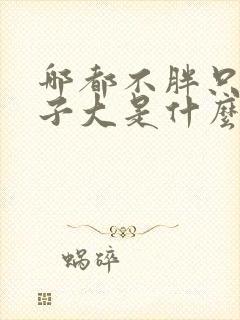 郍都不胖只
子大是什麼
蜗碎